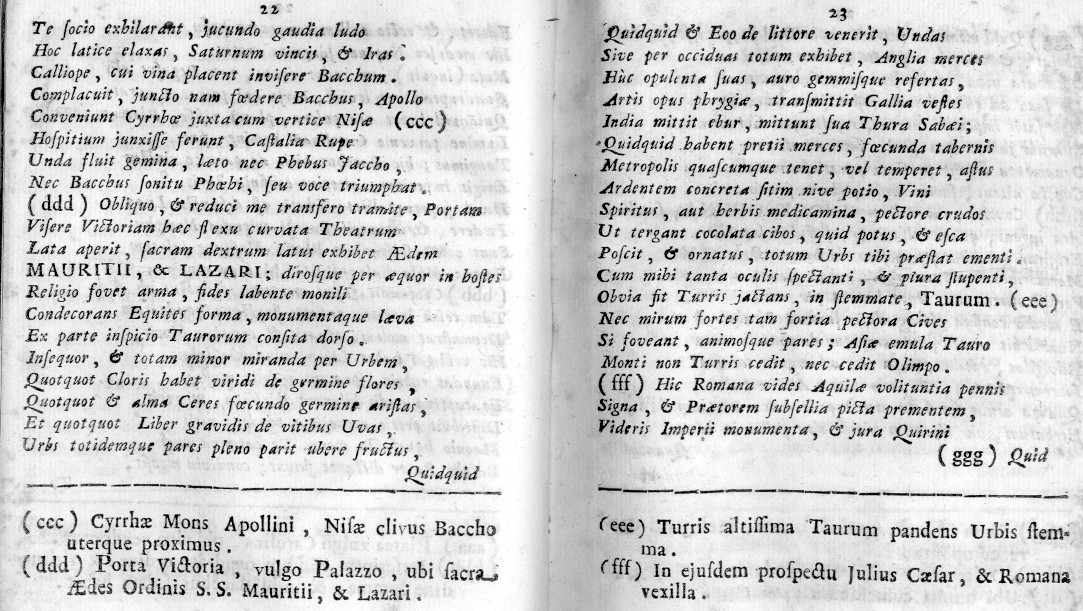 22
Te ſocio exhilarant, jucundo gaudia ludo
Hoc latice elaxas, Saturnum vincis, & Iras.
Calliope, cui vina placent inviſere Bacchum.
Complacuit, juncto nam fœdere Bacchus, Apollo
Conveniunt Cyrrhœ juxta cum vertice Niſæ (ccc)
Hoſpitium junxiſſe ferunt, Caſtalia Rupe
Unda fluit gemina, læto nec Phebus Jaccho,
Nec Bacchus ſonitu Phœbi, ſeu voce triumphat.
(ddd) Obliquo, & reduci me transfero tramite, Portam
Viſere Victoriam hæc flexu curvata Theatrum
Lata aperit, ſacram dextrum latus exhibet Ædem
MAURITII, & LAZARI; diroſque per æquor in hoſtes
Religio fovet arma, fides labente monili
Condecorans Equites forma, monumentaque læva
Ex parte inſpicio Taurorum conſita dorſo.
Inſequor, & totam minor miranda per Urbem,
Quotquot Cloris habet viridi de germine flores,
Quotquot & alma Ceres fœcundo germine ariſtas,
Et quotquot Liber gravidis de vitibus Uvas,
Urbs totidemque pares pleno parit ubere fructus,
Quidquid
(ccc) Cyrrhæ Mons Apollini, Niſæ clivus Baccho
uterque proximus.
(ddd) Porta Victoria, vulgo Palazzo, ubi ſacra
Ædes Ordinis S. S. Mauritii, & Lazari.
23
Quidquid & Eoo de littore venerit, Undas
Sive per occiduas totum exhibet, Anglia merces
Hùc opulenta ſuas, auro gemmiſque refertas,
Artis opus phrygiæ, tranſmittit Gallia veſtes
India mittit ebur, mittunt ſua Thura Sabæi;
Quidquid habent pretii merces, fœcunda tabernis
Metropolis quaſcumque tenet, vel temperet, æſtus
Ardentem concreta ſitim nive potio, Vini
Spiritus, aut herbis medicamina, pectore crudos
Ut tergant cocolata cibos, quid potus, & eſca
Poſcit, & ornatus, totum Urbs tibi præſtat ementi.
Cum mihi tanta oculis ſpectanti, & plura ſtupenti,
Obvia fit Turris jactans, in ſtemmate, Taurum. (eee)
Nec mirum fortes tam fortia pectora Cives
Si foveant, animoſque pares; Aſiæ emula Tauro
Monti non Turris cedit, nec cedit Olimpo.
(fff) Hìc Romana vides Aquilæ volitantia pennis
Signa, & Prætorem ſubſellia picta prementem,
Videris Imperii monumenta, & jura Quirini
(ggg) Quid
(eee) Turris altiſſima Taurum pandens Urbis ſtem-
ma.
(fff) In ejuſdem proſpectu Julius Cæſar, & Romana
vexilla.